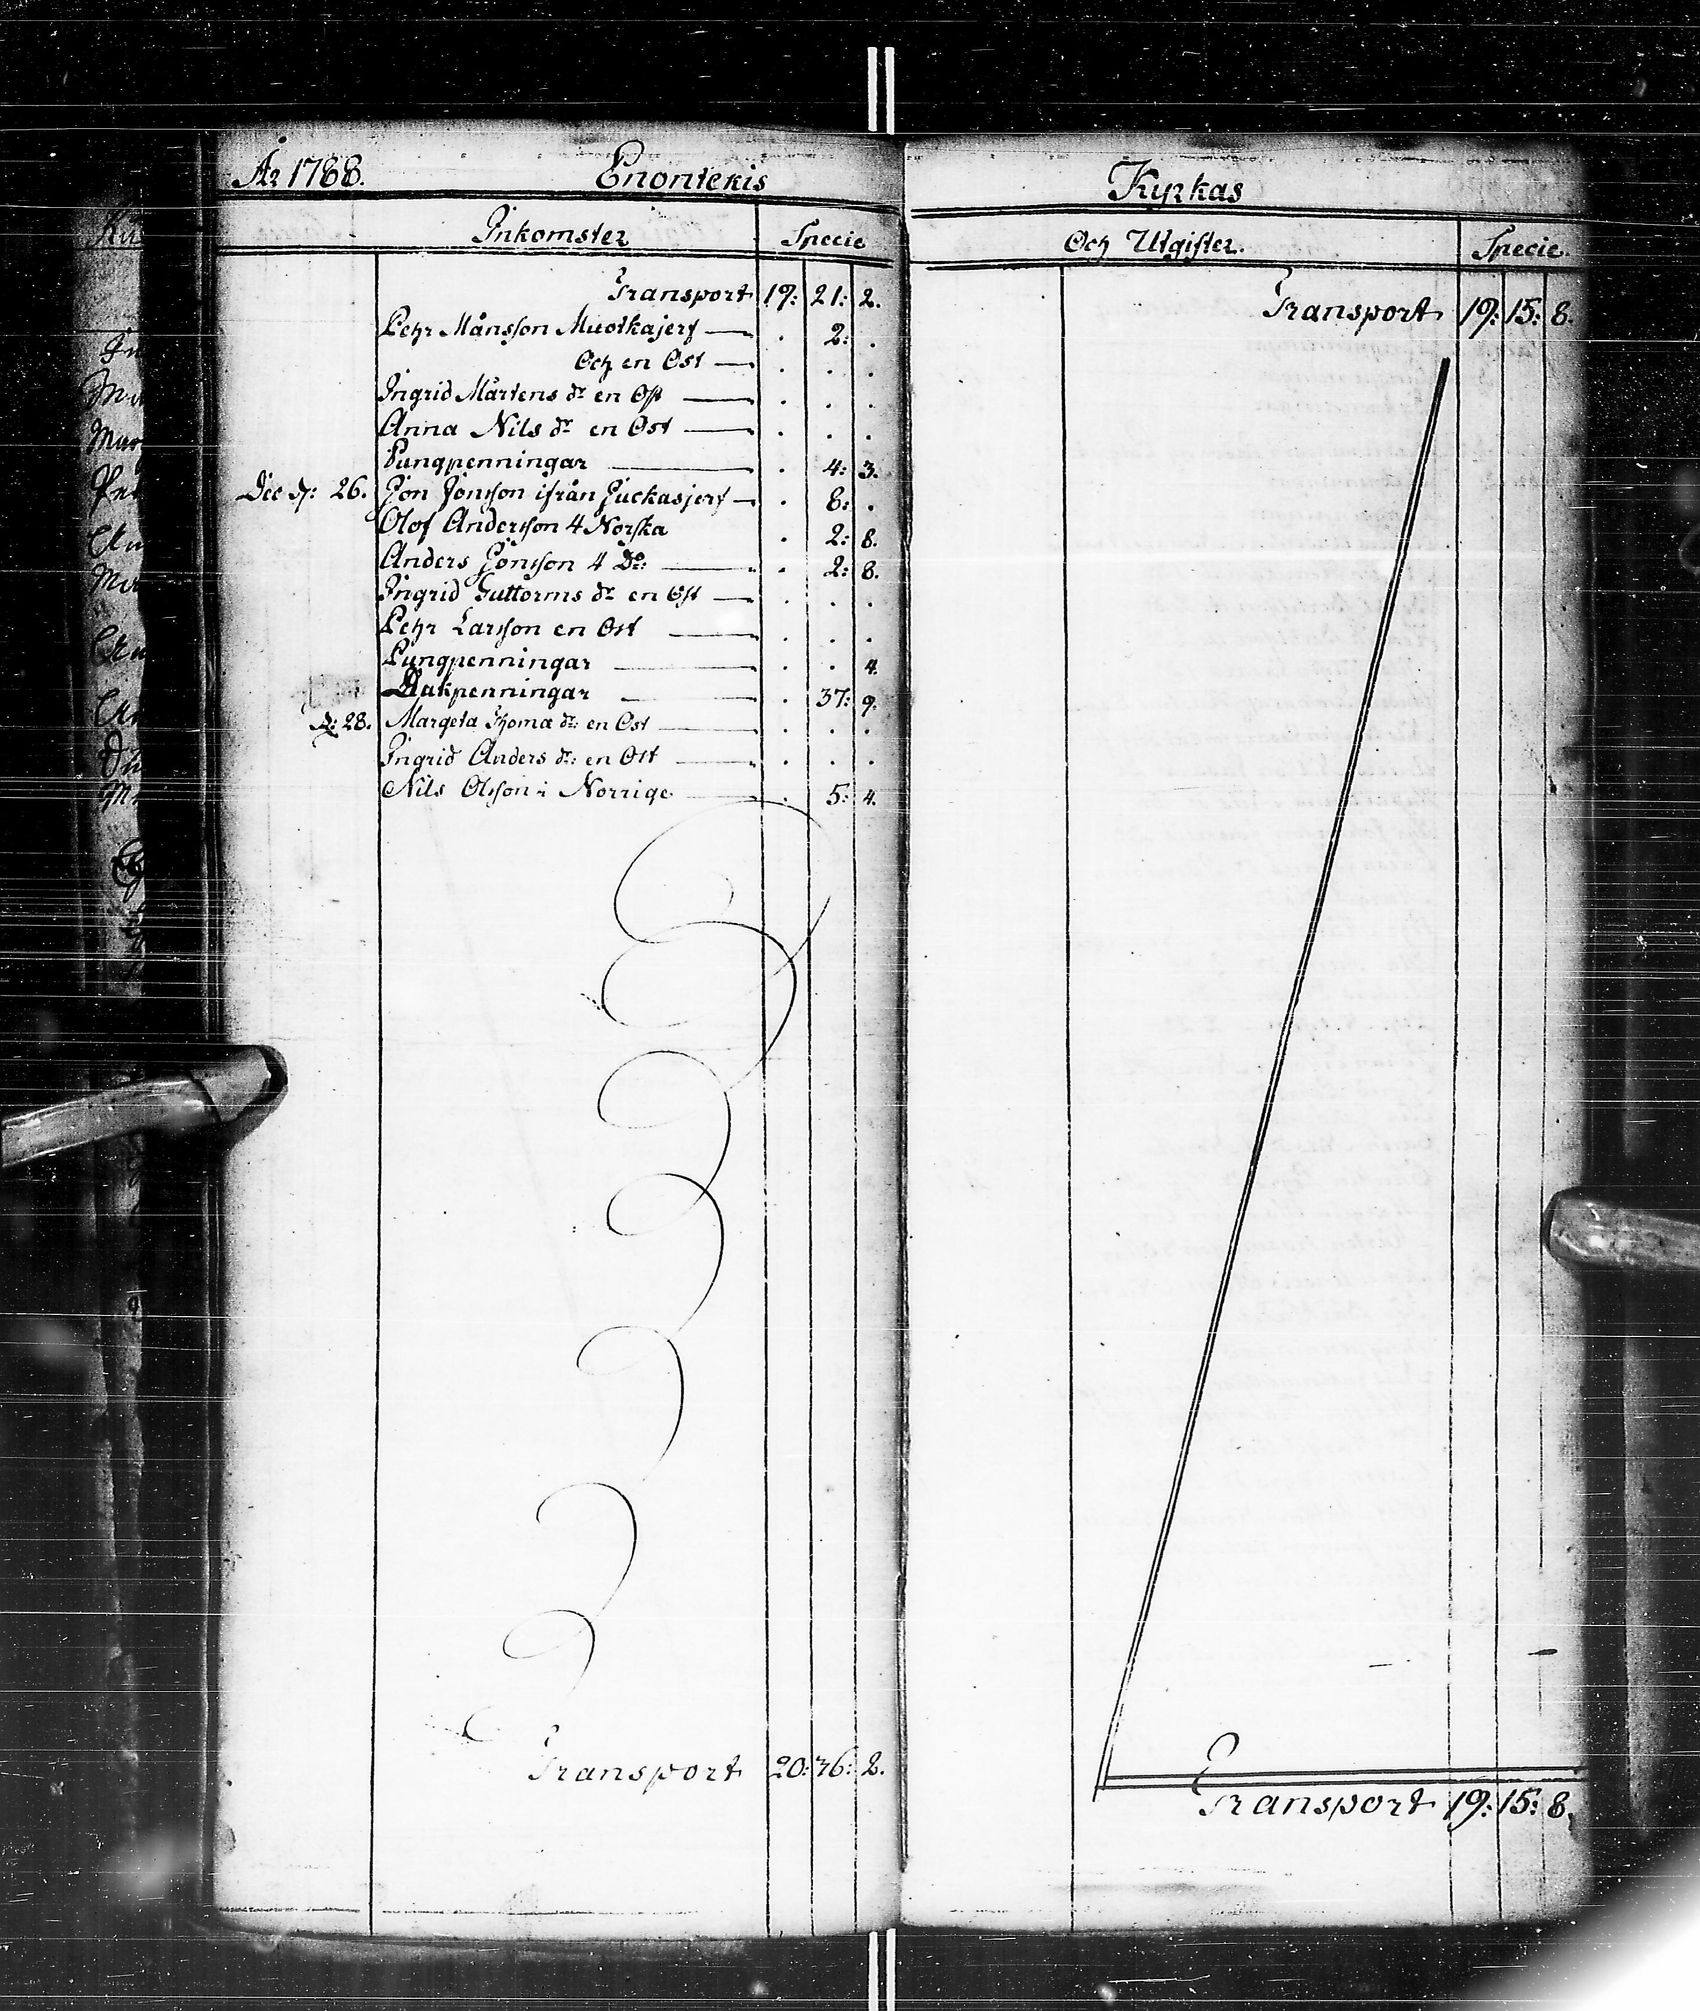 Åo 1788. Enontekis
Inkomster Specie
Transport 19: 21: 2.
Pehr Månsson Muotkajerf . 2: .
Och en Ost . . .
Ingrid Mårtens dr en Ost . . .
Anna Nils dr en Ost . . .
Pungpenningar . 4: 3.
Dec d: 26. Jon Jonsson ifrån Juckasjerf . 8: .
Olof Andersson 4 Norska . 2: 8.
Anders Jönsson 4 Do: . 2: 8.
Ingrid Guttorms dr en Ost . . .
Pehr Larsson en Ost . . .
Pungpenningar . . 4.
Rakpenningar . 37: 9.
d: 28. Margeta Thomæ dr: en Ost . . .
Ingrid Anders dr: en Ost . . .
Nils Olsson i Norrige . 5: 4.
Transport 20: 36: 2.
Kyrkas
Och Utgifter. Specie.
Transport 19: 15: 8.
Transport 19: 15: 8.